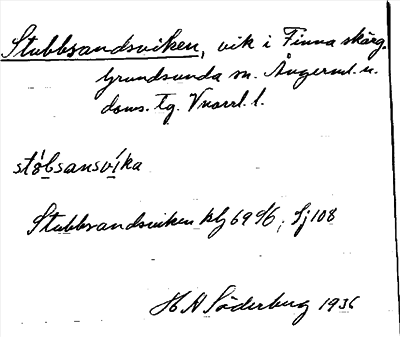 Stubbsandsviken, vik i Finna skärg.
Grundsunda sn. Ångerml. n.
doms. Tg. Vnorrl. l.
stòbsansvíka
Stubbsandsviken klg 69 96; Sj 108
H A Söderberg 1936